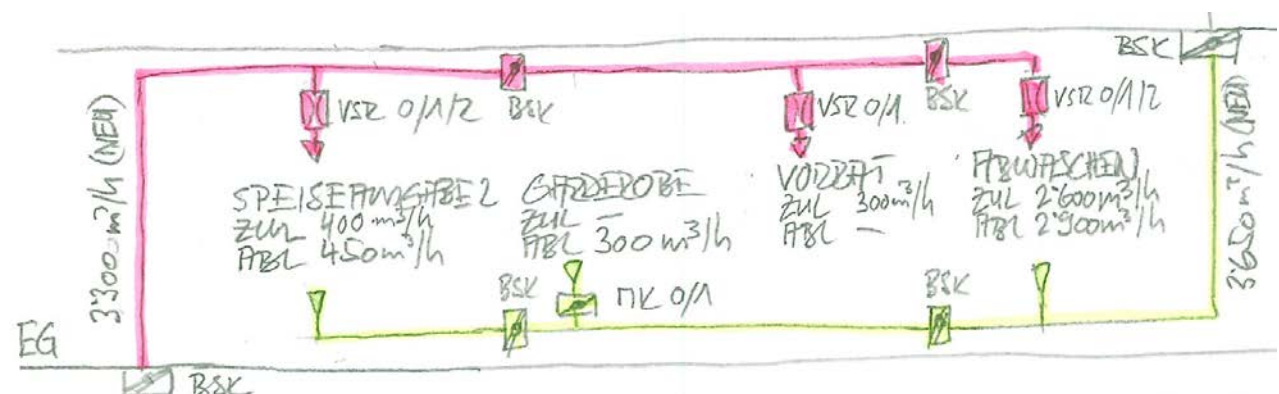 BSK
VSR 0/1/2
BSK
VSR 0/1
BSK
VSR 0/1/2
3'300 m³/h (NEU)
SPEISEAUSGABE 2
ZUL 400 m³/h
ABL 450 m³/h
GARDEROBE
ZUL –
ABL 300 m³/h
VORRAT
ZUL 300 m³/h
ABL –
ABWASCHEN
ZUL 2'600 m³/h
ABL 2'900 m³/h
3'650 m³/h (NEU)
BSK
MK 0/1
BSK
EG
BSK